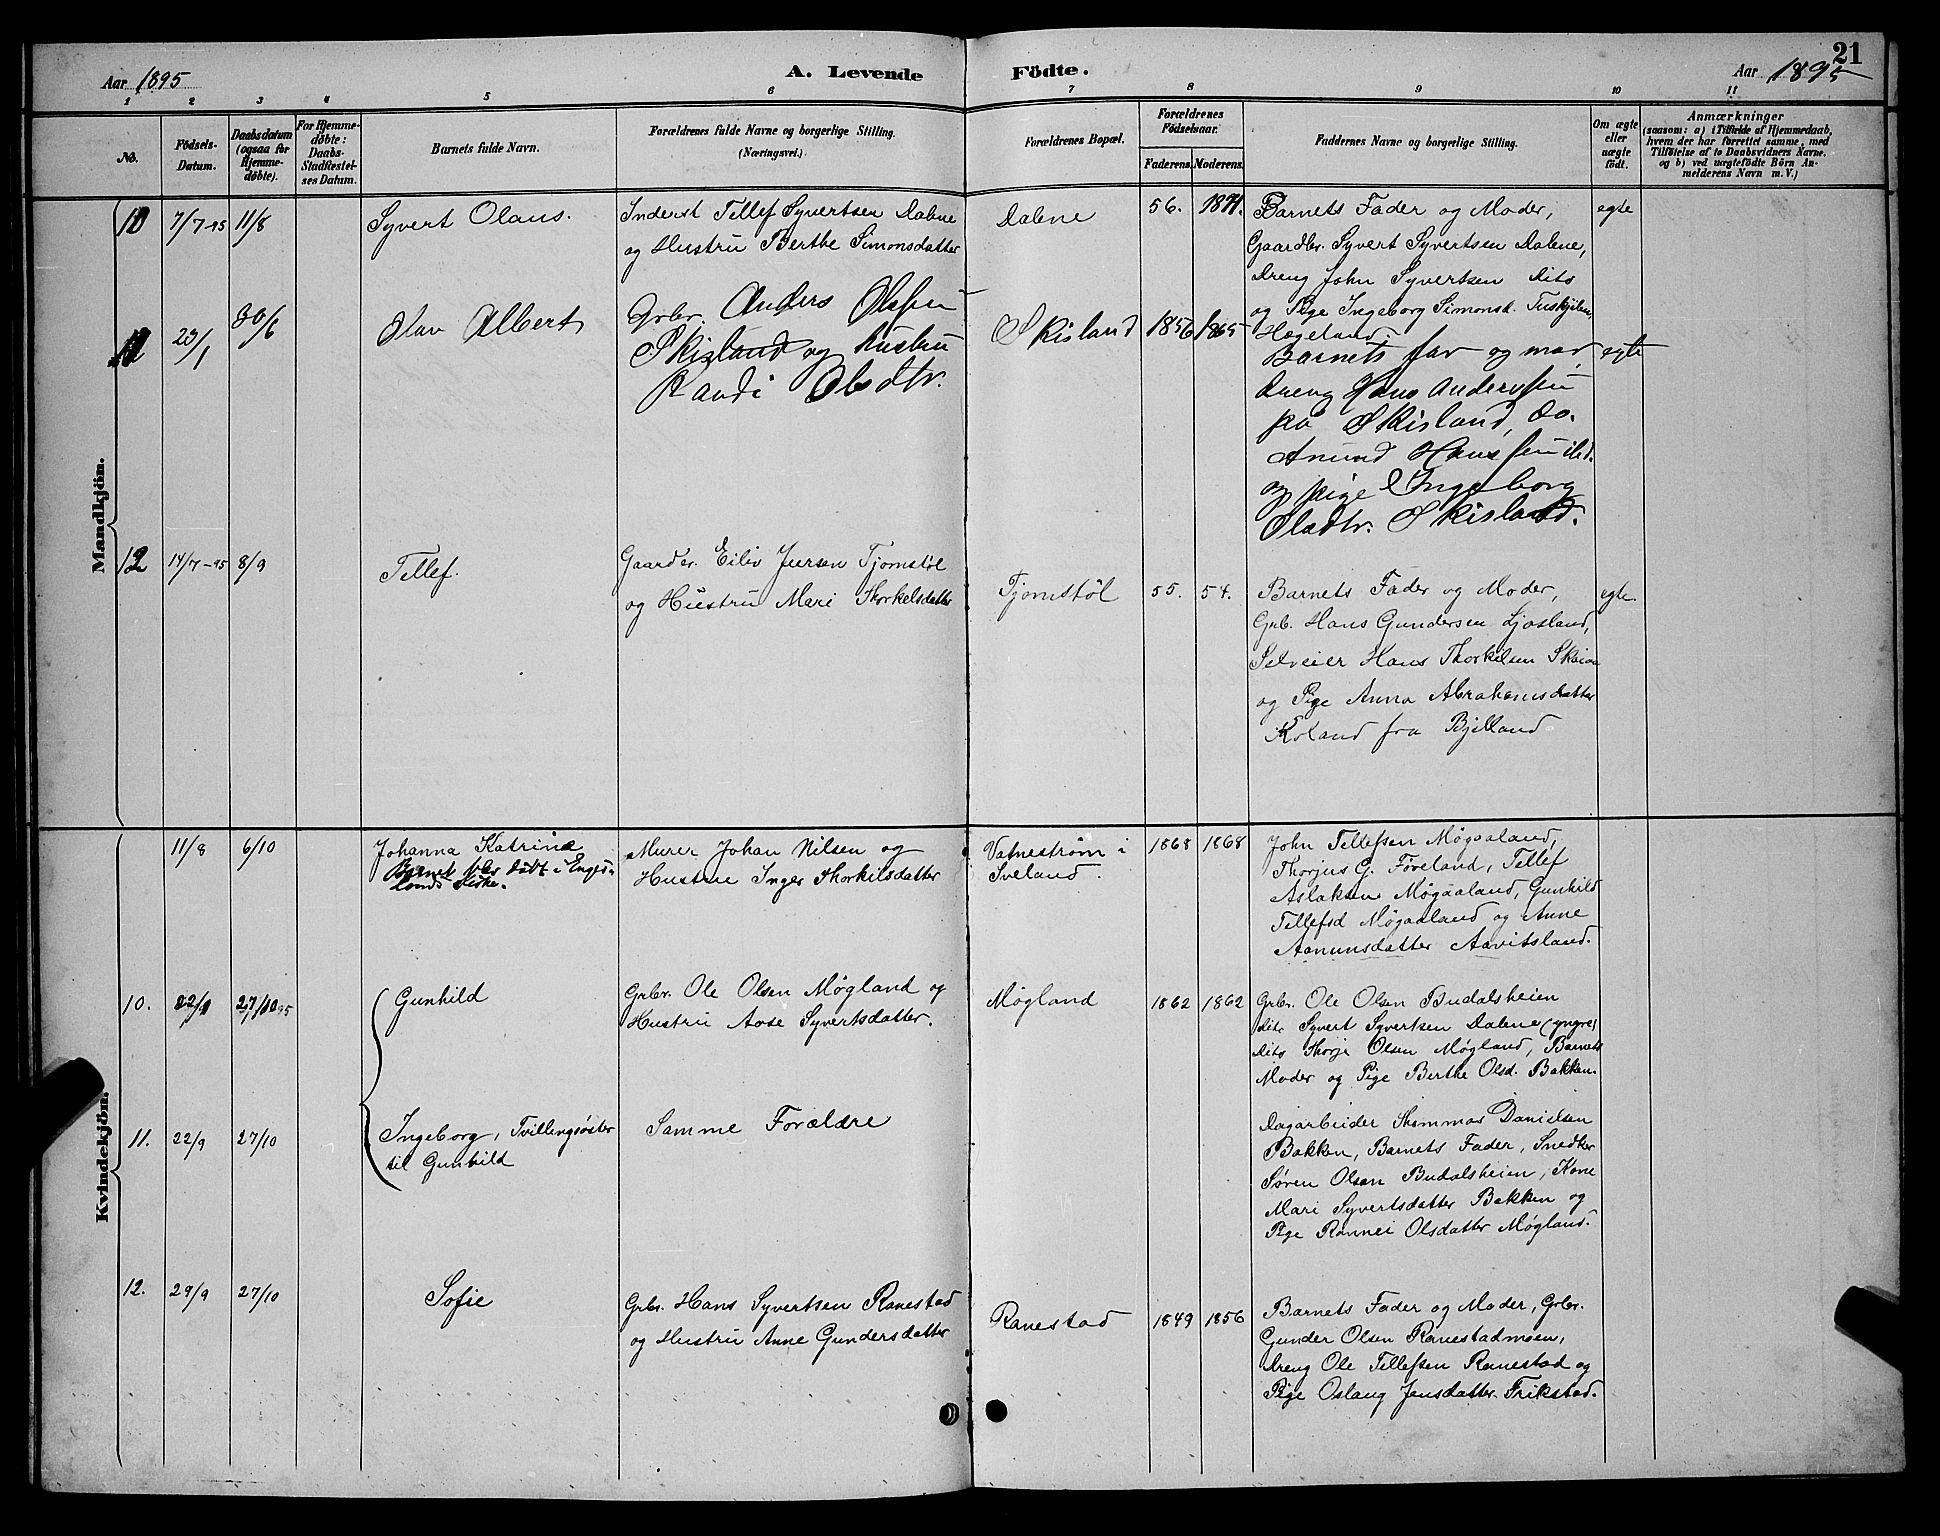 21
Aar 1895
A. Levende Födte.
Aar 1895
1 2 3 4 5 6 7 8 9 10 11
No.
Födsels-
Datum.
Daabsdatum
(ogsaa for
Hjemme-
döbte).
For Hjemme-
döbte:
Daabs-
Stadfæstel-
ses Datum.
Barnets fulde Navn.
Forældrenes fulde Navne og borgerlige Stilling.
(Næringsvei.)
Forældrenes Bopæl.
Forældrenes
Födselsaar.
Faderens. Moderens.
Faddernes Navne og borgerlige Stilling.
Om ægte
eller
uægte
födt.
Anmærkninger
(saasom: a) i Tilfælde af Hjemmedaab,
hvem der har forrettet samme, med
Tilföielse af to Daabsvidners Navne,
og b) ved uægtefödte Börn An-
melderens Navn m. V.)
Mandkjön.
10 7/7-95 11/8
Syvert Olaus.
Inderst Tellef Syvertsen Dalene
og Hustru Berthe Simonsdatter
Dalene
56. 1871.
Barnets Fader og Moder,
Gaardbr. Syvert Syvertsen Dalene,
Dreng John Syvertsen dits
og Pige Ingeborg Simonsd.
Hægeland.
egte
11 23/1 30/6
Olav Albert
Grbr. Anders Olsen
Skisland og hustru
Randi Olsdtr.
Skisland
1856 1865
Barnets far og mor
dreng Hans Andersen
på Skisland, do.
Anund Hanssen ibd.
og pige Ingeborg
Olsdtr. Skisland.
egte
12 14/7-95 8/9
Tellef.
Gaardbr. Eiliv Jversen Tjomstøl
og Hustru Mari Thorkelsdatter
Tjomstøl
55. 54.
Barnets Fader og Moder,
Grb. Hans Gundersen Ljosland,
Selveier Hans Thorkelsen
og Pige Anna Abrahamsdatter
Roland fra Bjelland
egte
Kvindekjön.
11/8 6/10
Johanna Katrine
Barnet blev døbt i Enges-
lands Kirke.
Murer Johan Nilsen og
Hustru Inger Thorkilsdatter
Vatnestrøm i
Iveland.
1868 1868
John Tellefsen Møgaaland,
Thorjus G. Föreland, Tellef
Aslaksen Møgaaland, Gunhild
Tellefsd Møgaaland og Anne
Aanunsdatter Aavitsland.
10. 22/9 27/10 95
Gunhild
Grbr. Ole Olsen Møgland og
Hustru Aase Syvertsdatter.
Møgland
1862 1862
Grbr. Ole Olsen Budalsheien
dits Syvert Syvertsen Dalene (yngre)
dits Thorje Olsen Møgland, Barnets
Moder og Pige Berthe Olsd. Bakken.
11. 22/9 27/10
Ingeborg, Tvillingsøster
til Gunhild
Samme Forældre
Dagarbeider Thommas Danielsen
Bakken, Barnets Fader, Snedker
Søren Olsen Budalsheien, Kone
Mari Syvertsdatter Bakken og
Pige Rønnei Olsdatter Møgland.
12. 29/9 27/10
Sofie
Grbr. Hans Syvertsen Ranestad
og Hustru Anne Gundersdatter
Ranestad
1849 1856
Barnets Fader og Moder, Grbr.
Gunder Olsen Ranestadmoen,
dreng Ole Tellefsen Ranestad og
Pige Oslaug Jensdatter Frikstad.